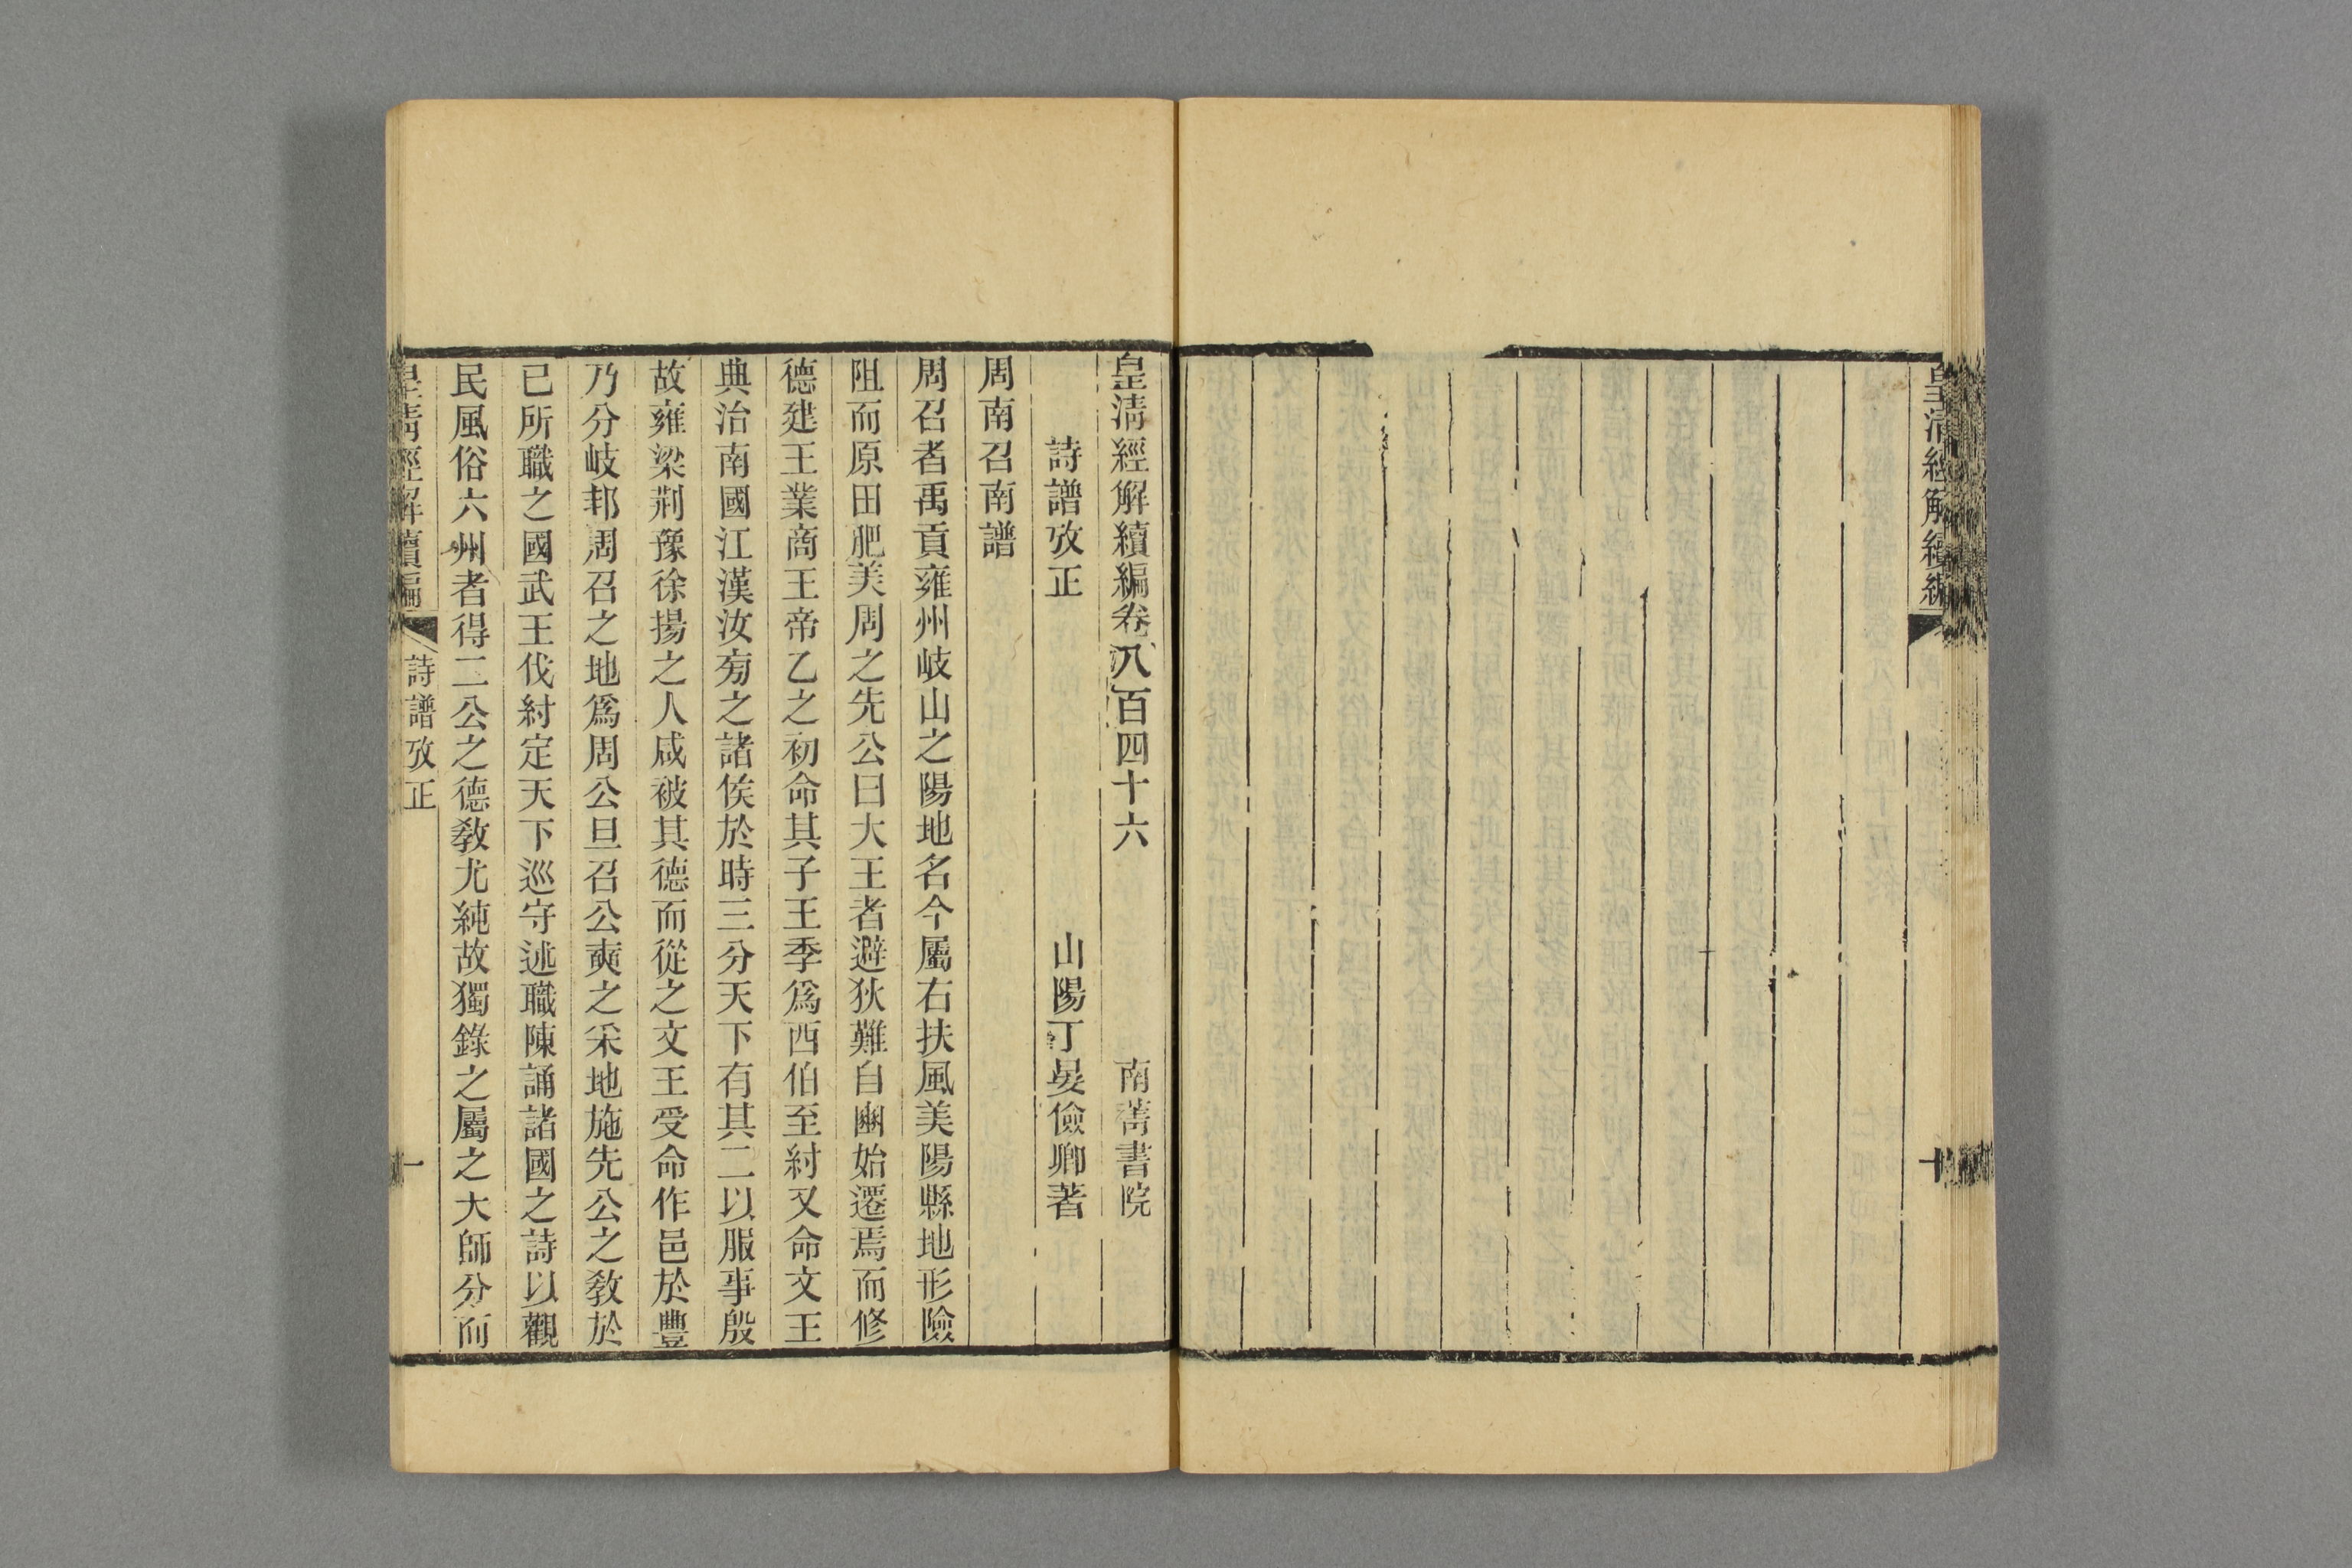 皇清經解續編
十
皇清經解續編卷八百四十六　南菁書院
詩譜攷正　山陽丁晏儉卿著
周南召南譜
周召者禹貢雍州岐山之陽地名今屬右扶風美陽縣地形險
阻而原田肥美周之先公曰大王者避狄難自豳始遷焉而修
德建王業商王帝乙之初命其子王季爲西伯至紂又命文王
典治南國江漢汝旁之諸侯於時三分天下有其二以服事殷
故雍梁荆豫徐揚之人咸被其德而從之文王受命作邑於豐
乃分岐邦周召之地爲周公旦召公奭之采地施先公之敎於
已所職之國武王伐紂定天下巡守述職陳誦諸國之詩以觀
民風俗六州者得二公之德敎尤純故獨錄之屬之大師分而
皇清經解續編
詩譜攷正
一